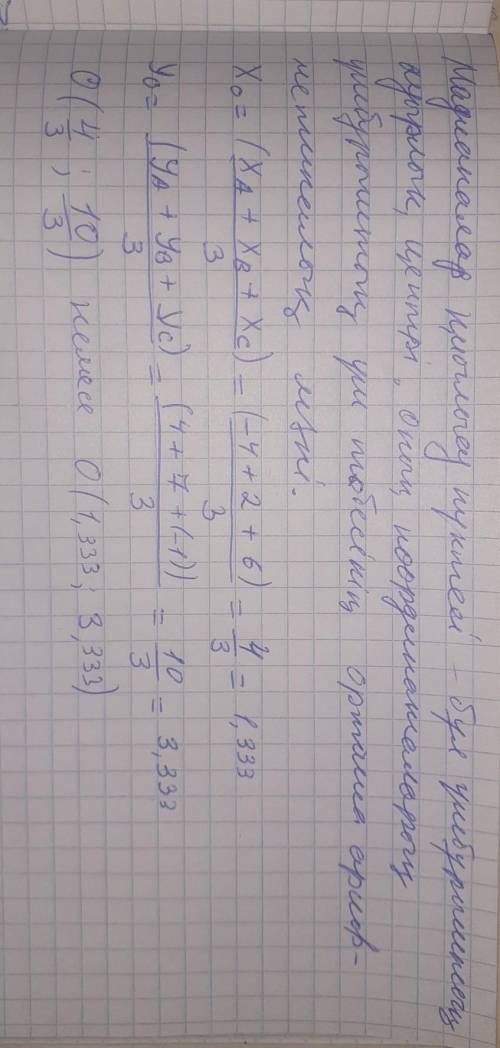 Медианалар қиылысу нүктесі - бұл үшбұрыштың
ауырлық центрі, оның координаталары
үшбұрыштың үш төбесінің орташа арифме-
тикалық мәні.
X₀ = (X_A + X_B + X_C) / 3 = (-4 + 2 + 6) / 3 = 4/3 = 1,333
Y₀ = (Y_A + Y_B + Y_C) / 3 = (4 + 7 + (-1)) / 3 = 10/3 = 3,333
O(4/3 ; 10/3) немесе O(1,333; 3,333)